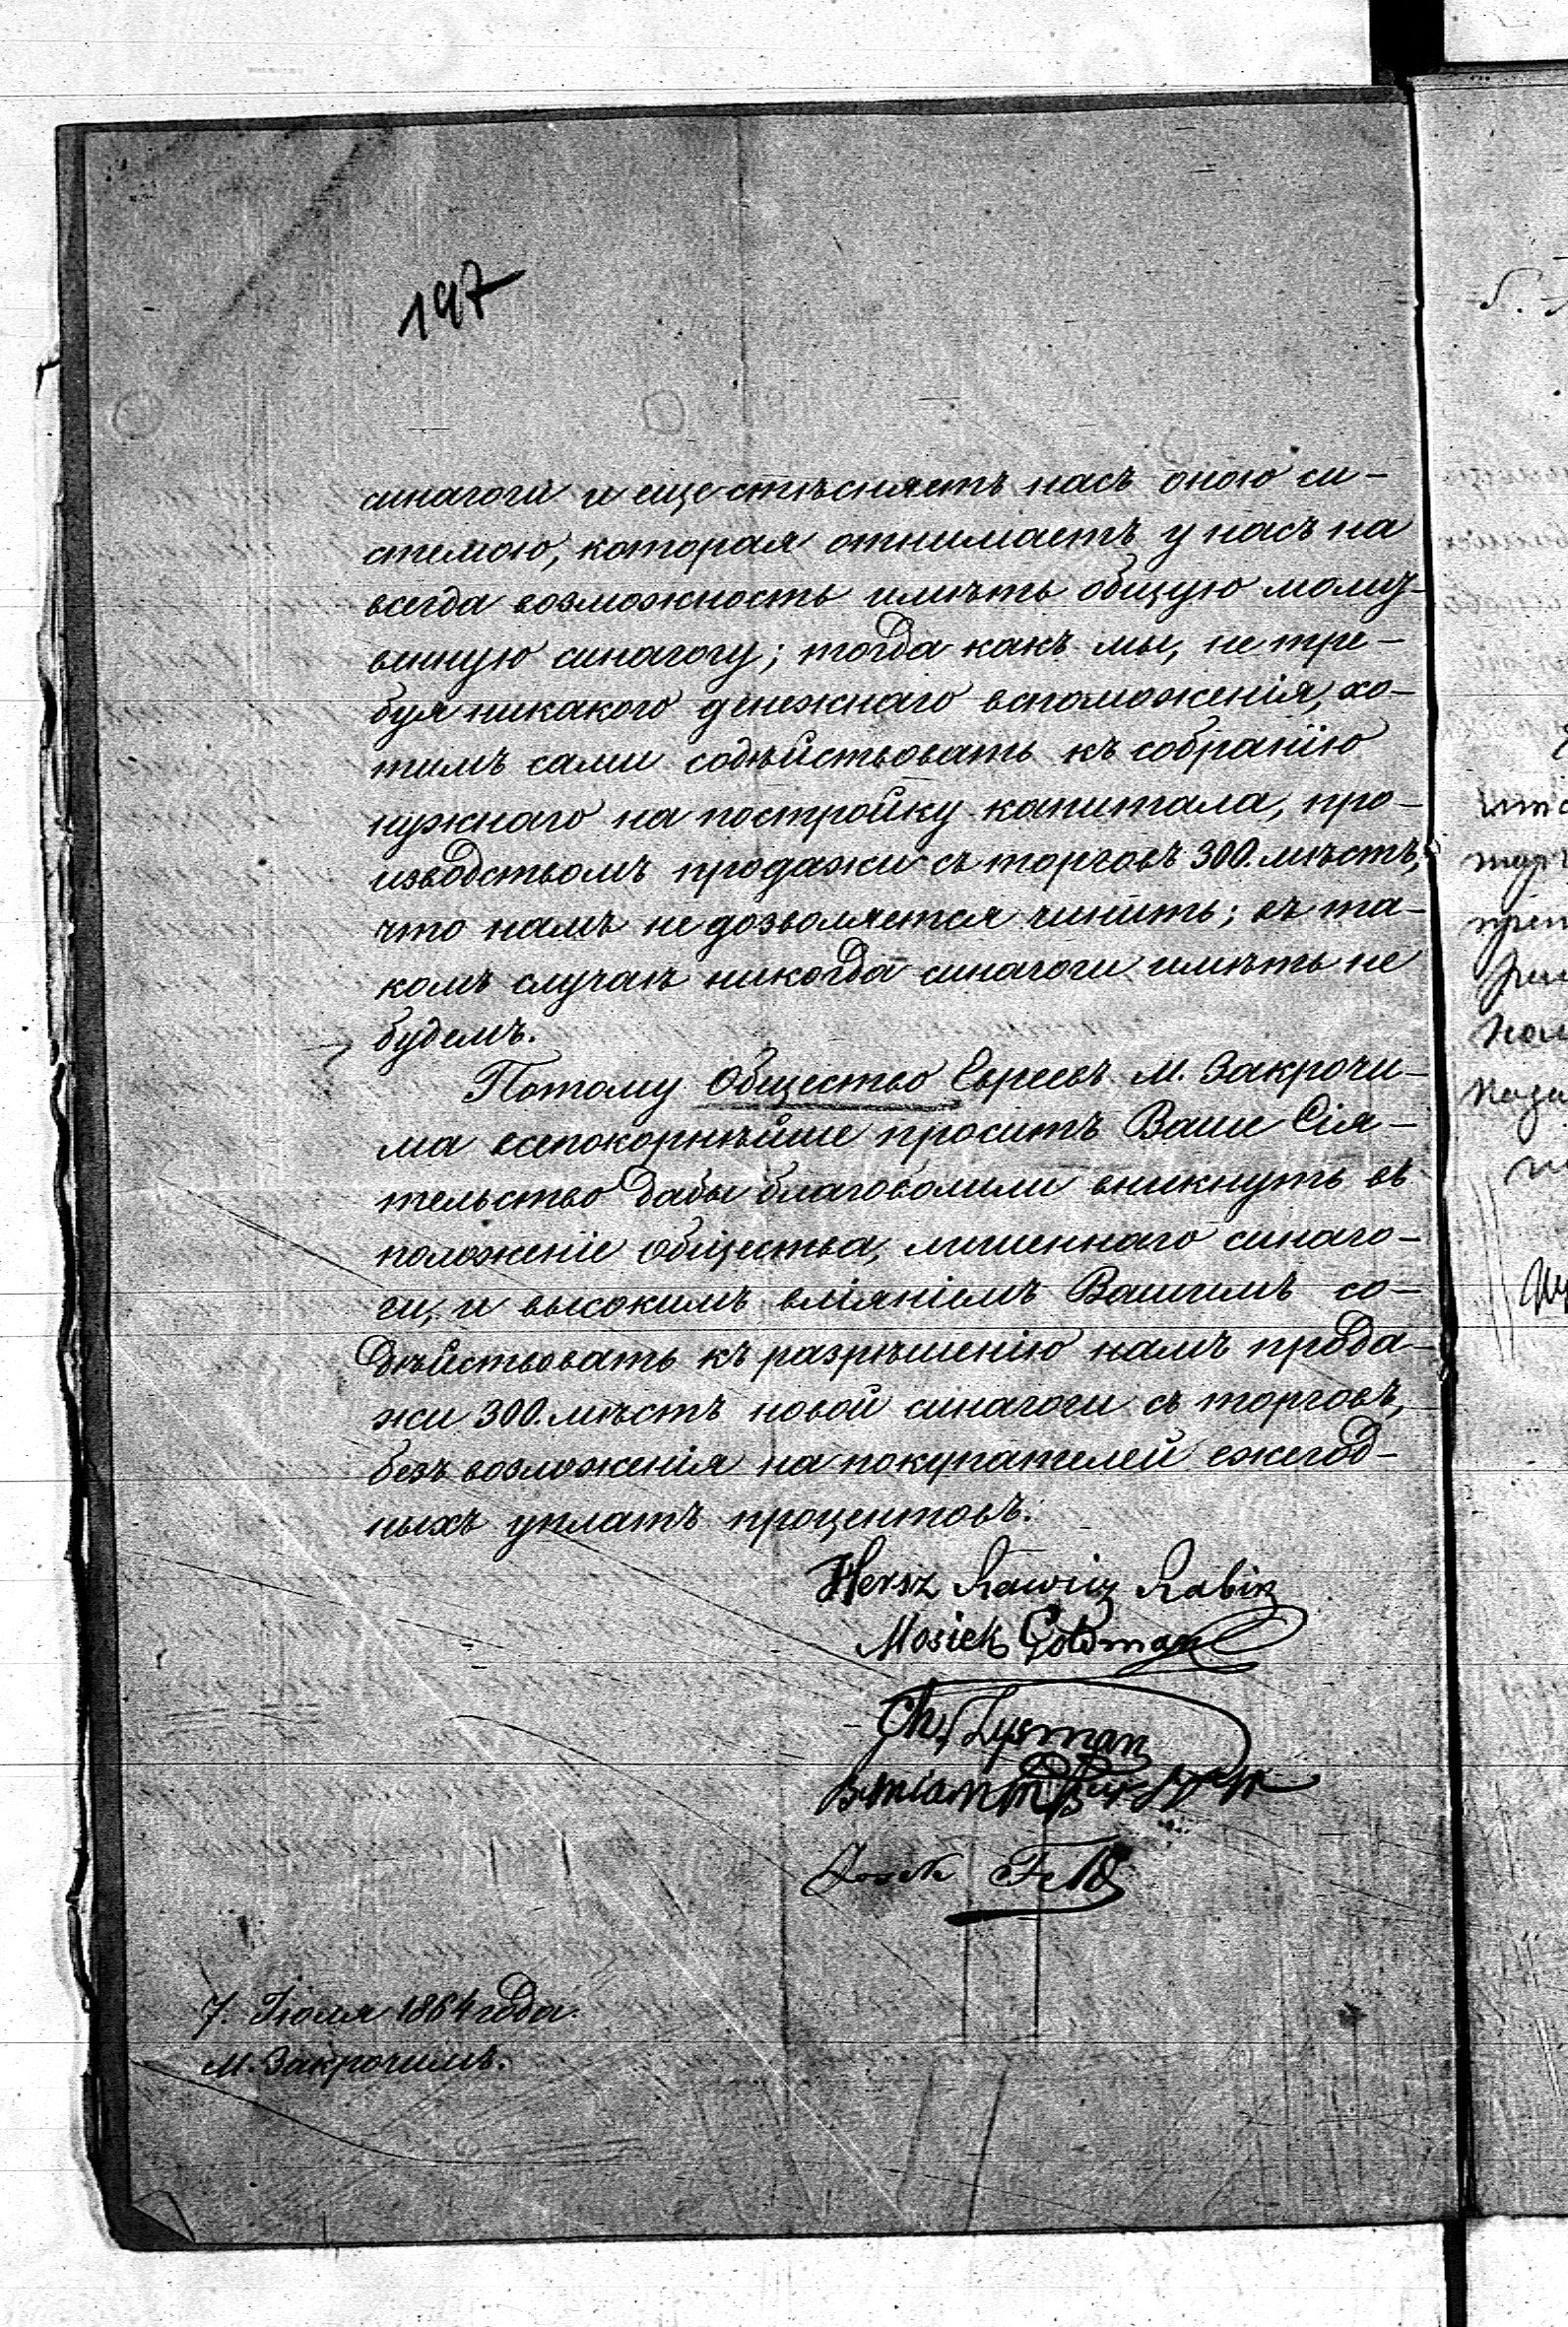 197
синагоги и еще стѣсняетъ насъ оною си-
стемою, которая отнимаетъ у насъ на
всегда возможность имѣть общую молит-
венную синагогу; тогда какъ мы, не тре-
буя никакого денежнаго вспоможенія, хо-
тимъ сами содѣйствовать къ собранію
нужнаго на постройку капитала, про-
изводствомъ продажи съ торговъ 300. мѣстъ,
что намъ не дозволяется чинить; въ та-
комъ случаѣ никогда синагоги имѣть не
будемъ.
Потому Общество Евреевъ м. Закрочи-
ма всепокорнѣйше проситъ Ваше Сія-
тельство дабы благоволили вникнуть въ
положеніе общества, лишеннаго синаго-
ги, и высокимъ вліяніемъ Вашимъ со-
дѣйствовать къ разрѣшенію намъ прода-
жи 300. мѣстъ новой синагоги съ торговъ,
безъ возложенія на покупателей ежегод-
ныхъ уплатъ процентовъ.
Hersz Rawicz Rabin
Mosiek Goldman
Ch. Zysman
Josek Feld
7. Іюля 1864 года.
м. Закрочимъ.